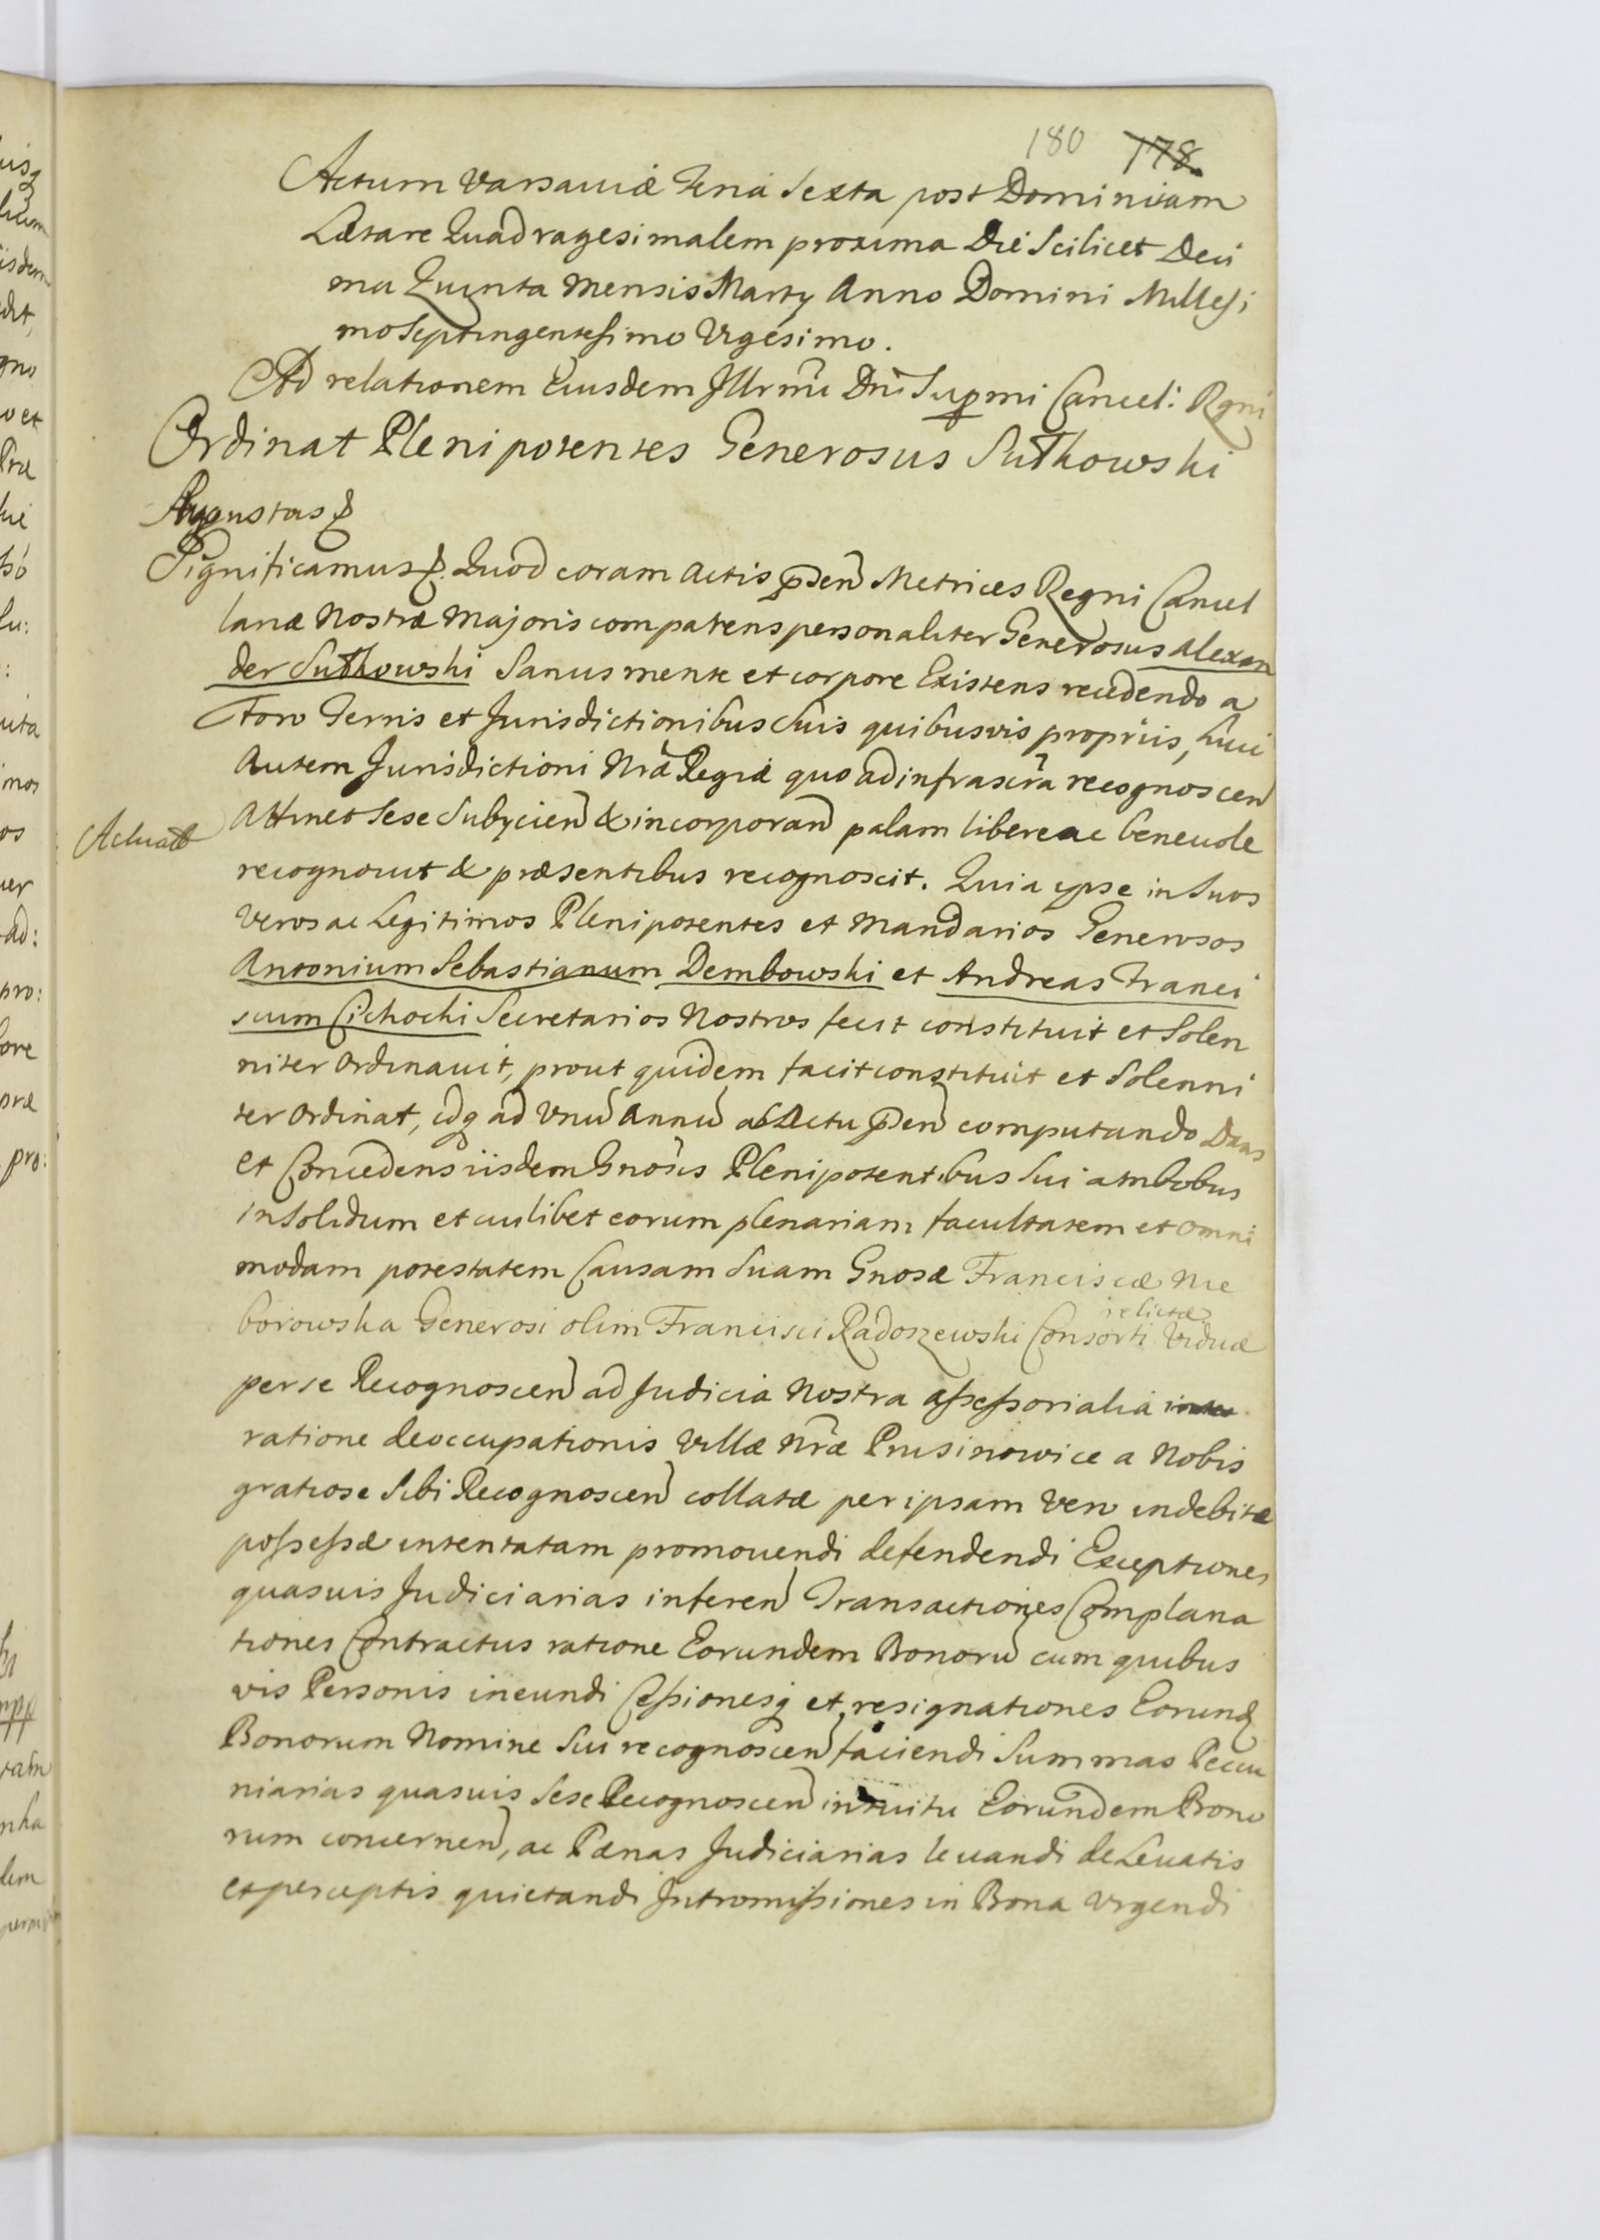 180 178
Actum Varsaviæ Feria Sexta post Dominicam
Lætare Quadragesimalem proxima Die Scilicet Deci
ma Quinta Mensis Marty Anno Domini Millesi
mo Septingentesimo Vigesimo.
Ad relationem Eiusdem Illrmi Dni Supmi Cancel: Rgni
Ordinat Plenipotentes Generosus Sutkowski
Augustus &
Significamus &. Quod coram Actis pden Metrices Regni Cancel
lariæ Nostræ Majoris comparens personaliter Generosus Alexan
der Sutkowski Sanus mente et corpore Existens recedendo a
Foro Terris et Jurisdictionibus Suis quibusvis proprijs, huic
Autem Jurisdictioni Nræ Regiæ quo ad infrascra recognoscen
Attinet Sese Subyicien & incorporan palam libere ac benevole
Actuat
recognovit & præsentibus recognoscit. Quia ipse in Suos
Veros ac Legitimos Plenipotentes et Mandarios Generosos
Antonium Sebastianum Dembowski et Andreas Franci
scum Cichocki Secretarios Nostros fecit constituit et Solen
niter Ordinavit, prout quidem facit constituit et Solenni
ter Ordinat, idq ad Vnu Annu ab Actu pden computando Dans
et Concedens iisdem Gnosis Plenipotentibus Sui ambobus
in Solidum et cuilibet eorum plenariam facultatem et omni
modam potestatem Causam Suam Gnosæ Franciscæ Nie
borowska Generosi olim Francisci Radoszewski Consorti relictæ Viduæ
per se Recognoscen ad Judicia Nostra assessorialia
ratione deoccupationis Villæ Nræ Prusinowice a Nobis
gratiose Sibi Recognoscen collatæ per ipsam Vero indebite
possessæ intentatam promovendi defendendi Exceptiones
quasuis Judiciarias inferen Transactiones Complana
tiones Contractus ratione Eorundem Bonoru cum quibus
vis Personis ineundi Cessionesq et resignationes Eorund
Bonorum Nomine Sui recognoscen faciendi Summas Pecu
niarias quasuis Sese Recognoscen intuitu Eorundem Bono
rum concernen, ac Pænas Judiciarias levandi de Levatis
et perceptis quietandi Intromissiones in Bona Vrgendi